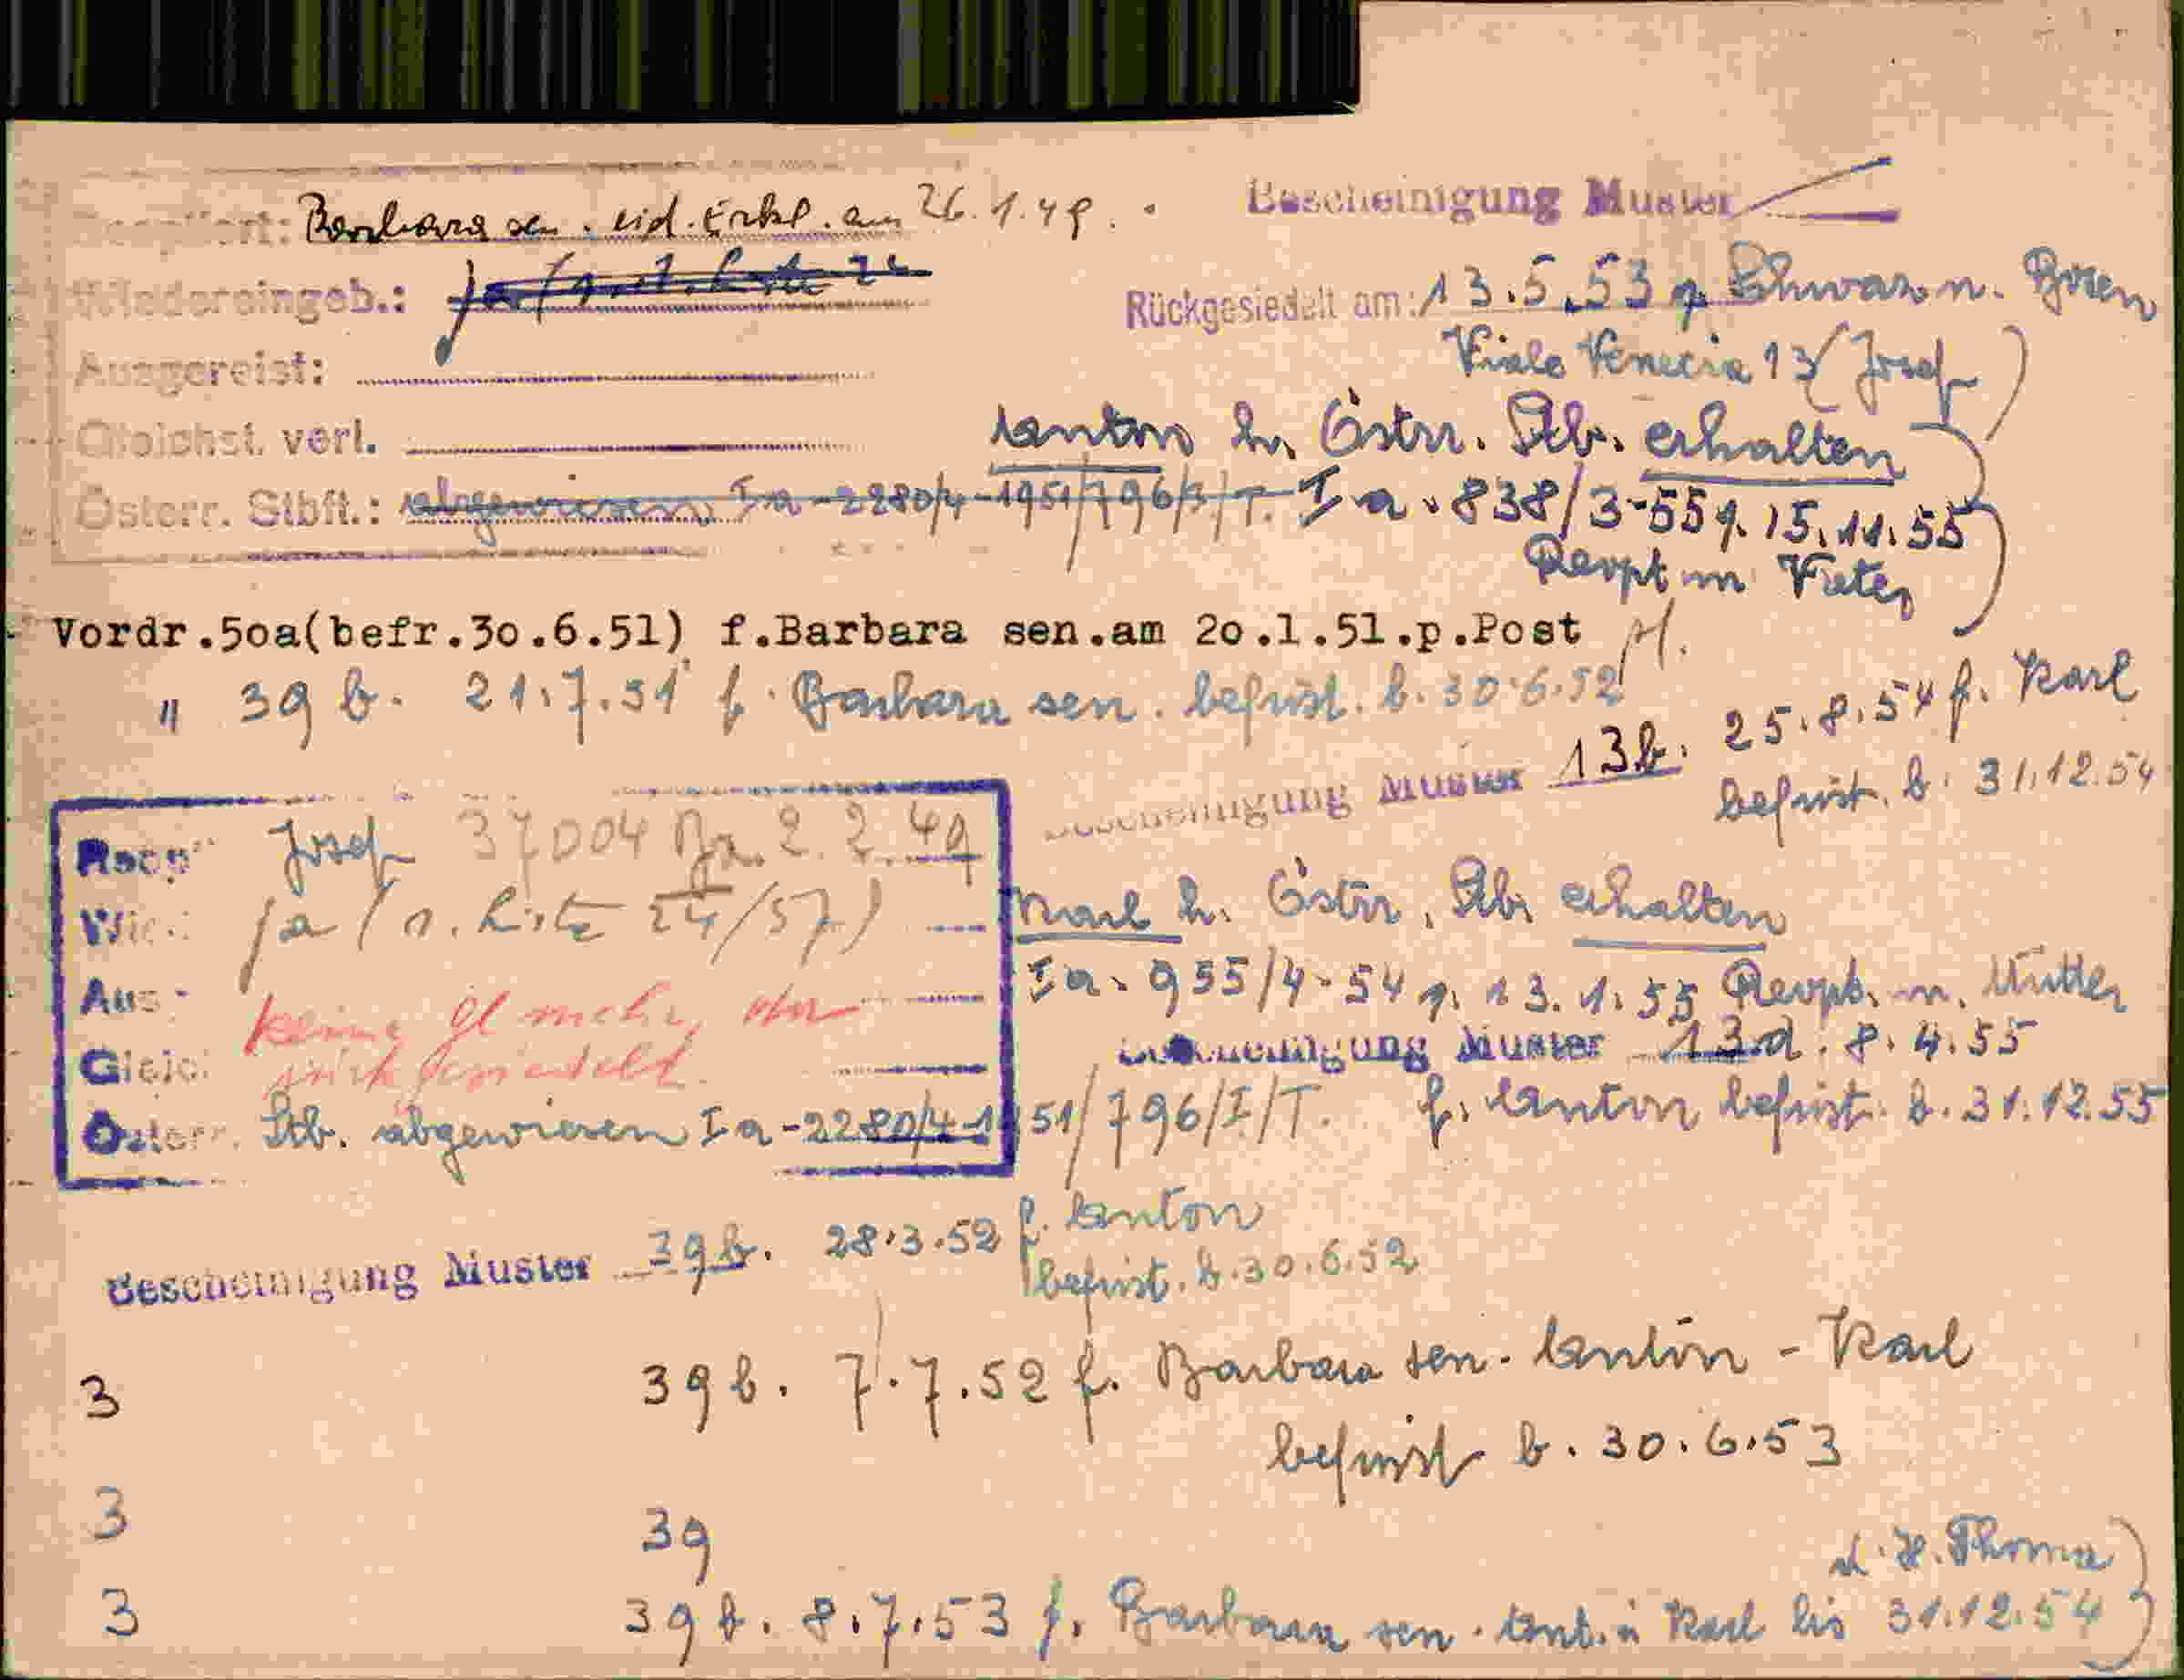 Barbara sen. eid. Erkl. am 26.1.49.
Bescheinigung Muster
Wiedereingeb.: ja
Rückgesiedelt am: 13.5.53 n. Bozen
Ausgereist:
Viale Venezia 13 (Josef)
Gleichst. verl.
Anton h. Östrr. Stb. erhalten
Österr. Stbft.: abgewiesen Ia-2280/4-1951/796/I/T. Ia-838/3-55 v. 15.11.55
Reopt m Vater
Vordr.50a(befr.30.6.51) f.Barbara sen.am 20.1.51.p.Post
" 39 b. 21.7.51 f. Barbara sen. befrist. b. 30.6.52
Bescheinigung Muster 13b. 25.8.54 f. Karl
befrist. b. 31.12.54
Josef 37004 Bz. 2.2.49
ja (n. Liste 24/57)
Karl h. Östrr. Stb. erhalten
Aus
Ia-955/4-54 v. 13.1.55 Reopt. m. Mutter
keine Gl mehr, da
rückgesiedelt.
Bescheinigung Muster 13.d. 8.4.55
f. Anton befrist. b. 31.12.55
Österr. Stb. abgewiesen Ia-2280/4-1951/796/I/T.
Bescheinigung Muster 39b. 28.3.52 f. Anton
befrist. b. 30.6.52
3 39 b. 7.7.52 f. Barbara sen - Anton - Karl
befrist b. 30.6.53
3 39
3 39 b. 8.7.53 f. Barbara sen. Ant. u Karl bis 31.12.54
d. H. Thoma